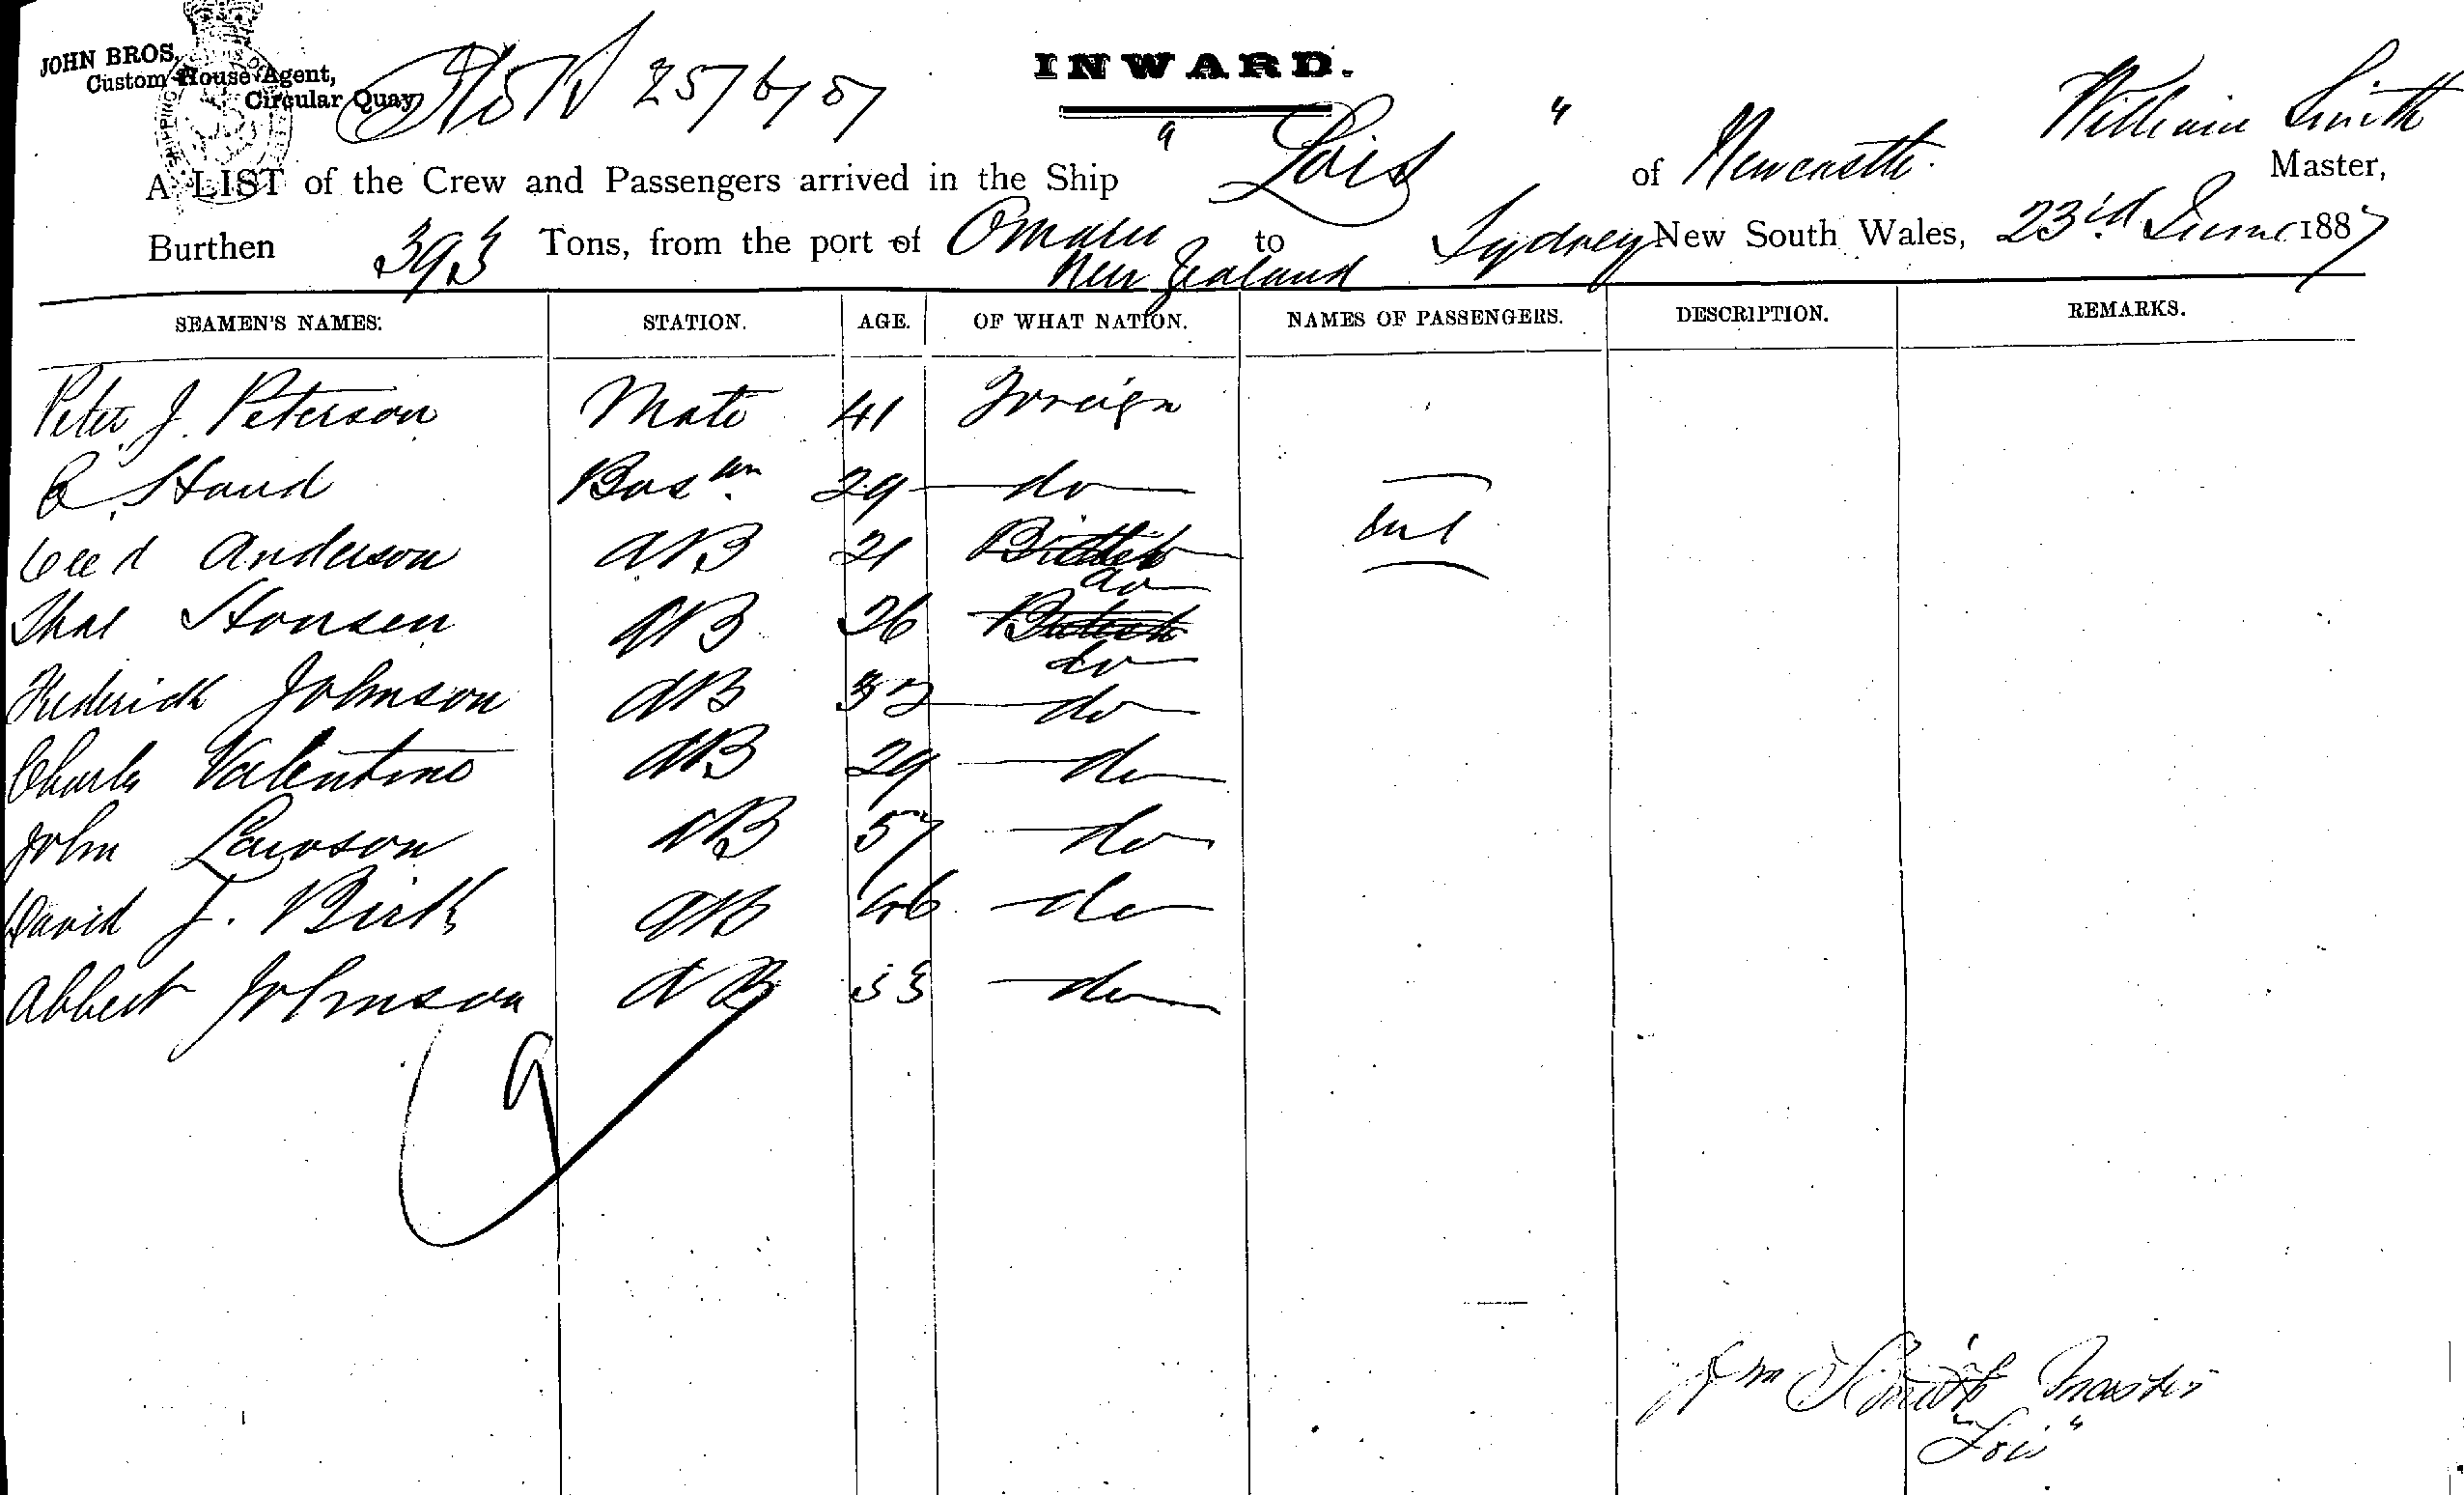 JOHN BROS,
Custom House Agent,
Circular Quay
25/6/87
INWARD.
A LIST of the Crew and Passengers arrived in the Ship "Lois" of Newcastle. William Smith Master,
Burthen 393 Tons, from the port of Omaru New Zealand to Sydney New South Wales, 23rd June 1887
SEAMEN'S NAMES: STATION. AGE. OF WHAT NATION. NAMES OF PASSENGERS. DESCRIPTION. REMARKS.
Peter J. Peterson Mate 41 Foreign
Hand Bosun 29 do
Anderson AB 21 British do nil
Thos Hansen AB 26 British do
Frederick Johnson AB 37 do
Charles Valentine AB 29 do
John Lawson AB 57 do
David J. Birk AB 46 do
Albert Johnson AB 33 do
9
Wm Smith Master
"Lois"